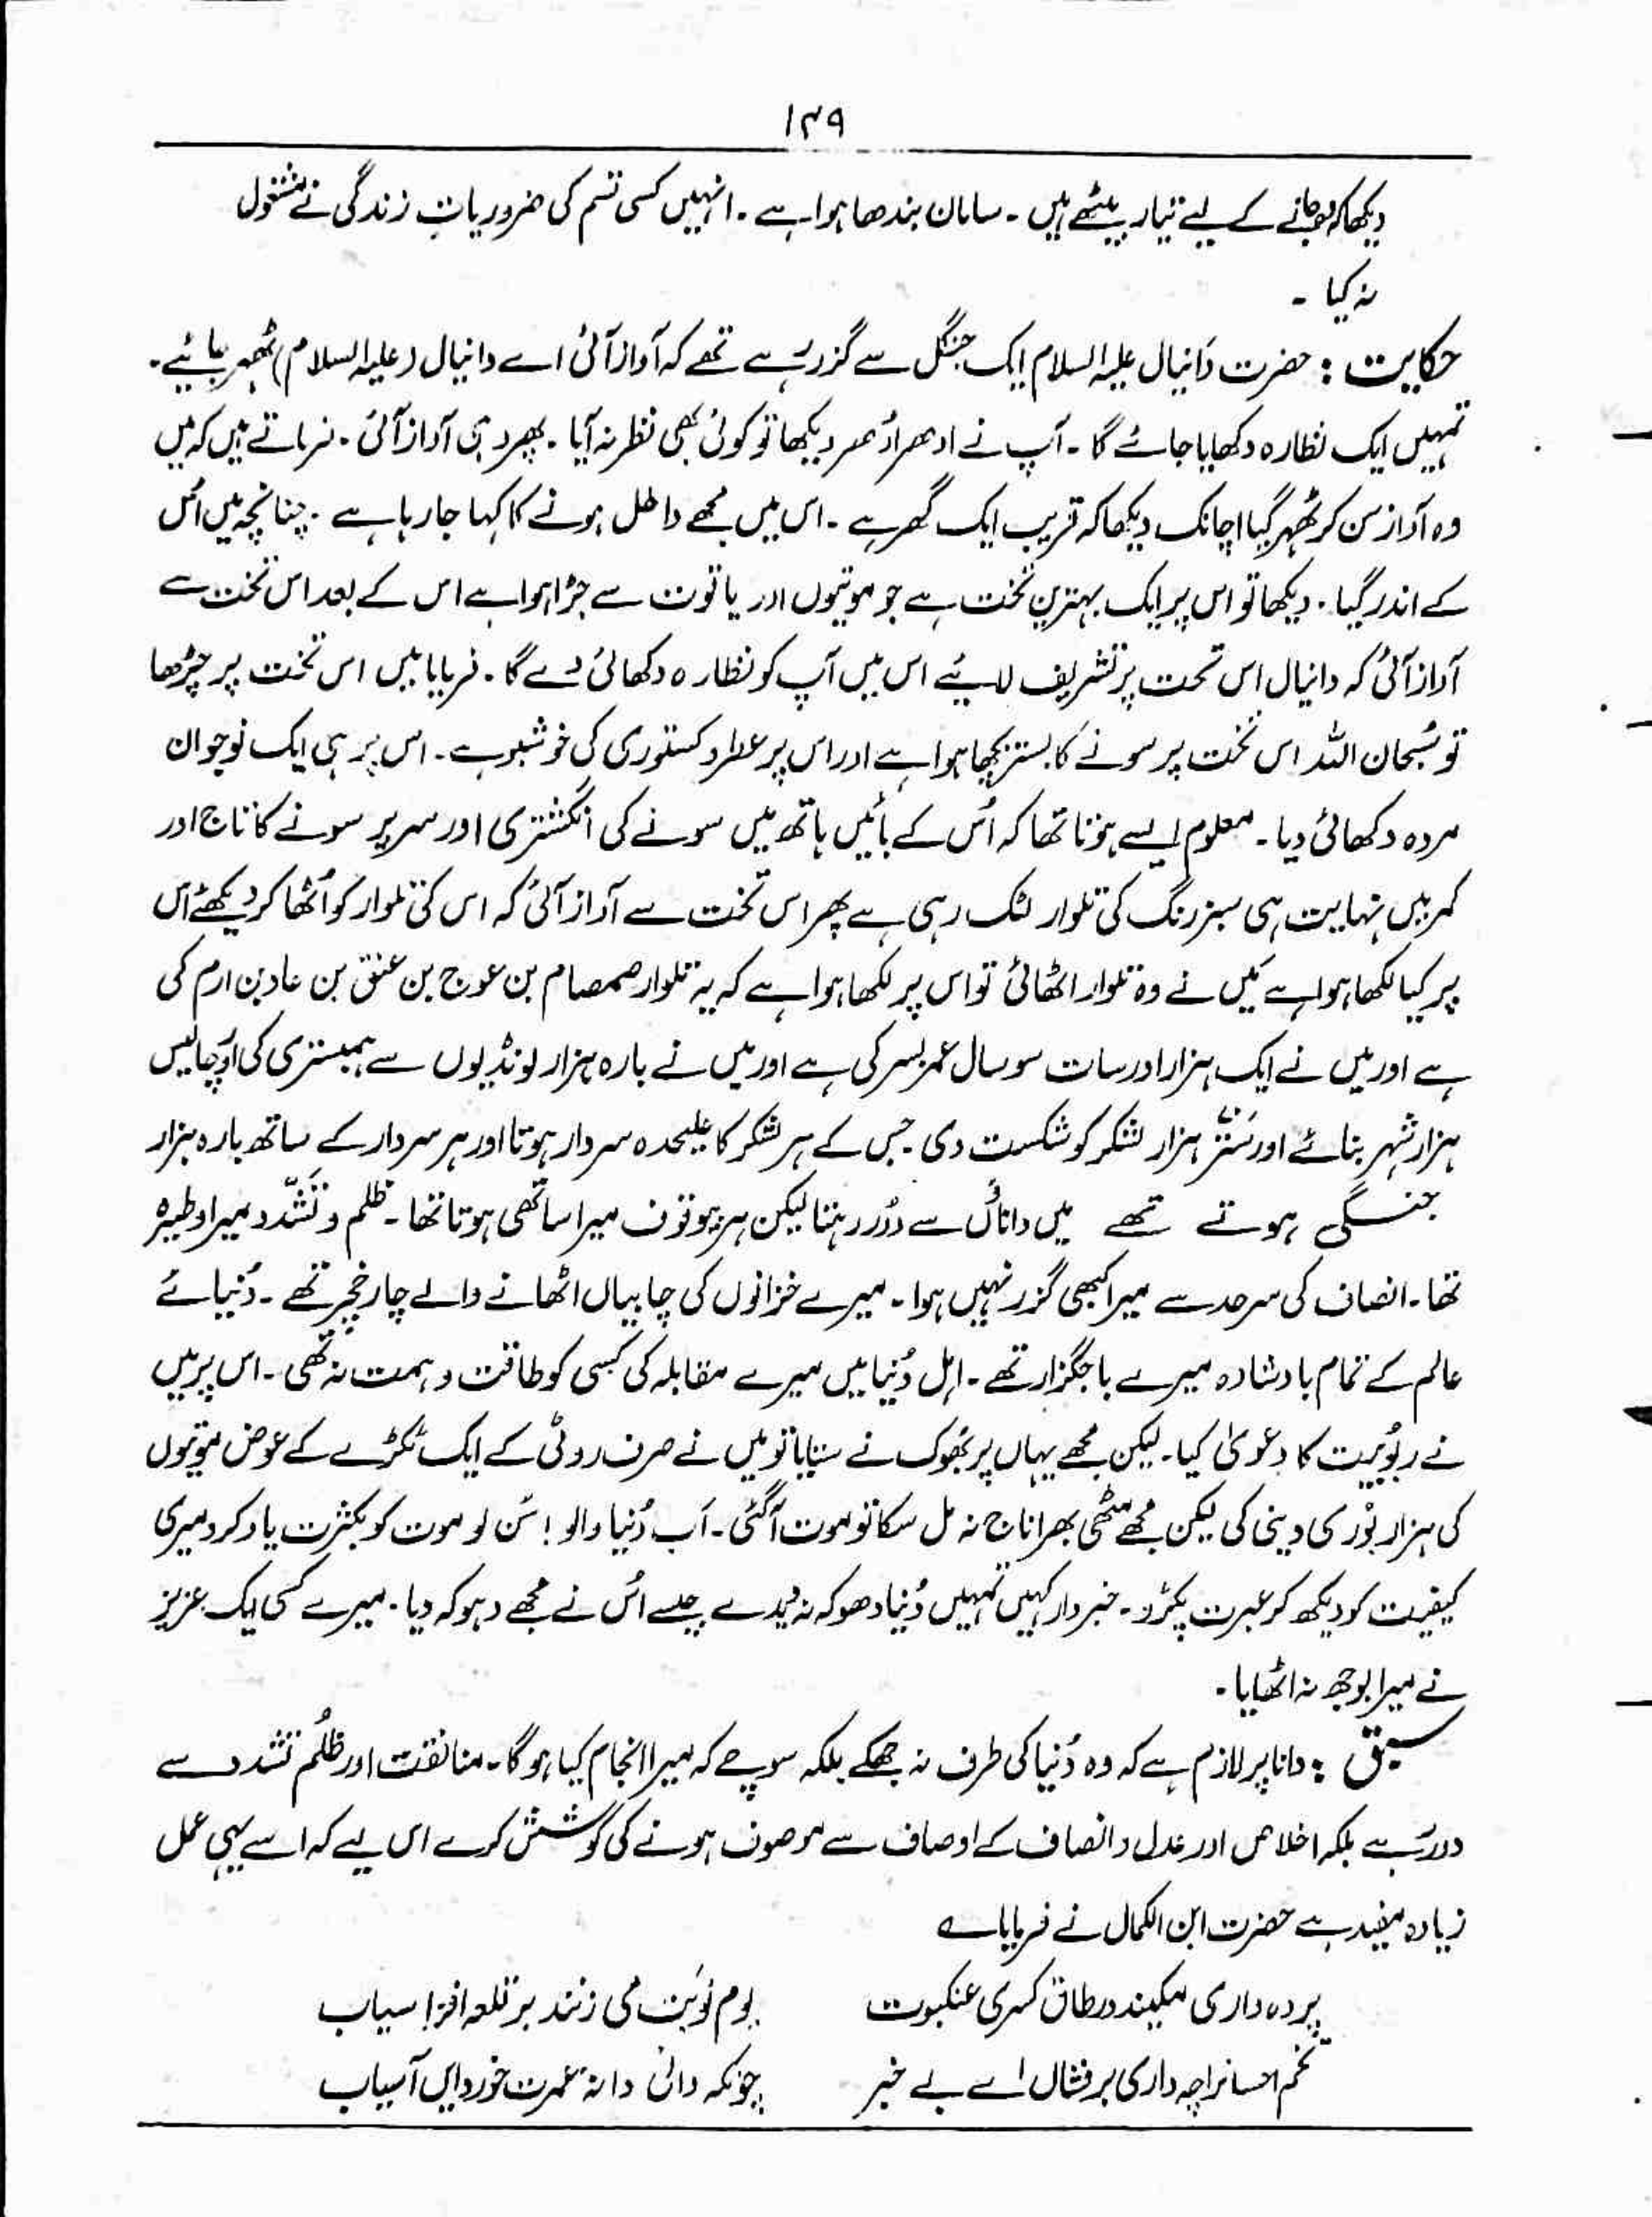 ۱۴۹
دیکھا کہ وہ جانے کے لیے تیار بیٹھے ہیں ۔ سامان بندھا ہوا ہے ۔ انہیں کسی قسم کی ضروریاتِ زندگی نے مشغول
نہ کیا ۔
حکایت : حضرت دانیال علیہ السلام ایک جنگل سے گزر رہے تھے کہ آواز آئی اے دانیال (علیہ السلام) ٹھہر جائیے ۔
تمہیں ایک نظارہ دکھایا جائے گا ۔ آپ نے ادھر اُدھر دیکھا تو کوئی بھی نظر نہ آیا ۔ پھر وہی آواز آئی ۔ فرماتے ہیں کہ میں
وہ آواز سن کر ٹھہر گیا اچانک دیکھا کہ قریب ایک گھر ہے ۔ اس میں مجھے داخل ہونے کا کہا جا رہا ہے ۔ چنانچہ میں اُس
کے اندر گیا ۔ دیکھا تو اس پر ایک بہترین تخت ہے جو موتیوں اور یاقوت سے جڑا ہوا ہے اس کے بعد اس تخت سے
آواز آئی کہ دانیال اس تخت پر تشریف لایئے اس میں آپ کو نظارہ دکھائی دے گا ۔ فرمایا میں اس تخت پر چڑھا
تو سُبحان اللہ اس تخت پر سونے کا بستر بچھا ہوا ہے اور اس پر عطر و کستوری کی خوشبو ہے ۔ اس پر ہی ایک نوجوان
مردہ دکھائی دیا ۔ معلوم ایسے ہوتا تھا کہ اُس کے بائیں ہاتھ میں سونے کی انگشتری اور سر پر سونے کا تاج اور
کمر میں نہایت ہی سبز رنگ کی تلوار لٹک رہی ہے پھر اس تخت سے آواز آئی کہ اس کی تلوار کو اُٹھا کر دیکھئے اس
پر کیا لکھا ہوا ہے میں نے وہ تلوار اٹھائی تو اس پر لکھا ہوا ہے کہ یہ تلوار صمصام بن عوج بن عنق بن عاد بن ارم کی
ہے اور میں نے ایک ہزار اور سات سو سال عمر بسر کی ہے اور میں نے بارہ ہزار لونڈیوں سے ہمبستری کی اور چالیس
ہزار شہر بنائے اور ستر ہزار لشکر کو شکست دی جس کے ہر لشکر کا علیحدہ سردار ہوتا اور ہر سردار کے ساتھ بارہ ہزار
جنگی ہوتے تھے میں داناؤں سے دُور رہتا لیکن ہر بیوقوف میرا ساتھی ہوتا تھا ۔ ظلم و تشدّد میرا وطیرہ
تھا ۔ انصاف کی سرحد سے میرا کبھی گزر نہیں ہوا ۔ میرے خزانوں کی چابیاں اٹھانے والے چار خچر تھے ۔ دُنیائے
عالم کے تمام بادشاہ میرے باجگزار تھے ۔ اہل دُنیا میں میرے مقابلہ کی کسی کو طاقت و ہمت نہ تھی ۔ اس پر میں
نے ربُوبیت کا دعویٰ کیا ۔ لیکن مجھے یہاں پر بُھوک نے ستایا تو میں نے صرف روٹی کے ایک ٹکڑے کے عوض موتیوں
کی ہزار بوُری دینی کی لیکن مجھے مٹھی بھر اناج نہ مل سکا تو موت آگئی ۔ اَب دُنیا والو ! سُن لو موت کو بکثرت یاد کرو میری
کیفیت کو دیکھ کر عبرت پکڑو ۔ خبردار کہیں تمہیں دُنیا دھوکہ نہ دیدے جیسے اُس نے مجھے دہوکہ دیا ۔ میرے کسی ایک عزیز
نے میرا بوجھ نہ اٹھایا ۔
سبق : دانا پر لازم ہے کہ وہ دُنیا کی طرف نہ جھکے بلکہ سوچے کہ میرا انجام کیا ہو گا ۔ منافقت اور ظلُم تشدد سے
دور رہے بلکہ اخلاص اور عدل و انصاف کے اوصاف سے موصوف ہونے کی کوشش کرے اس لیے کہ اسے یہی عمل
زیادہ مفید ہے حضرت ابن الکمال نے فرمایا ے
پردہ داری میکیند در طاق کسری عنکبوت
بوم نوبت می زند بر قلعہ افراسیاب
تخم احسانرا چہ داری بر فشاں اے بے خبر
چونکہ دانی دانۂ عمرت خورد ایں آسیاب